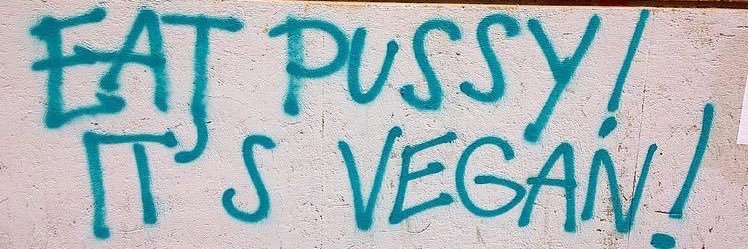 EAT PUSSY!
IT'S VEGAN!